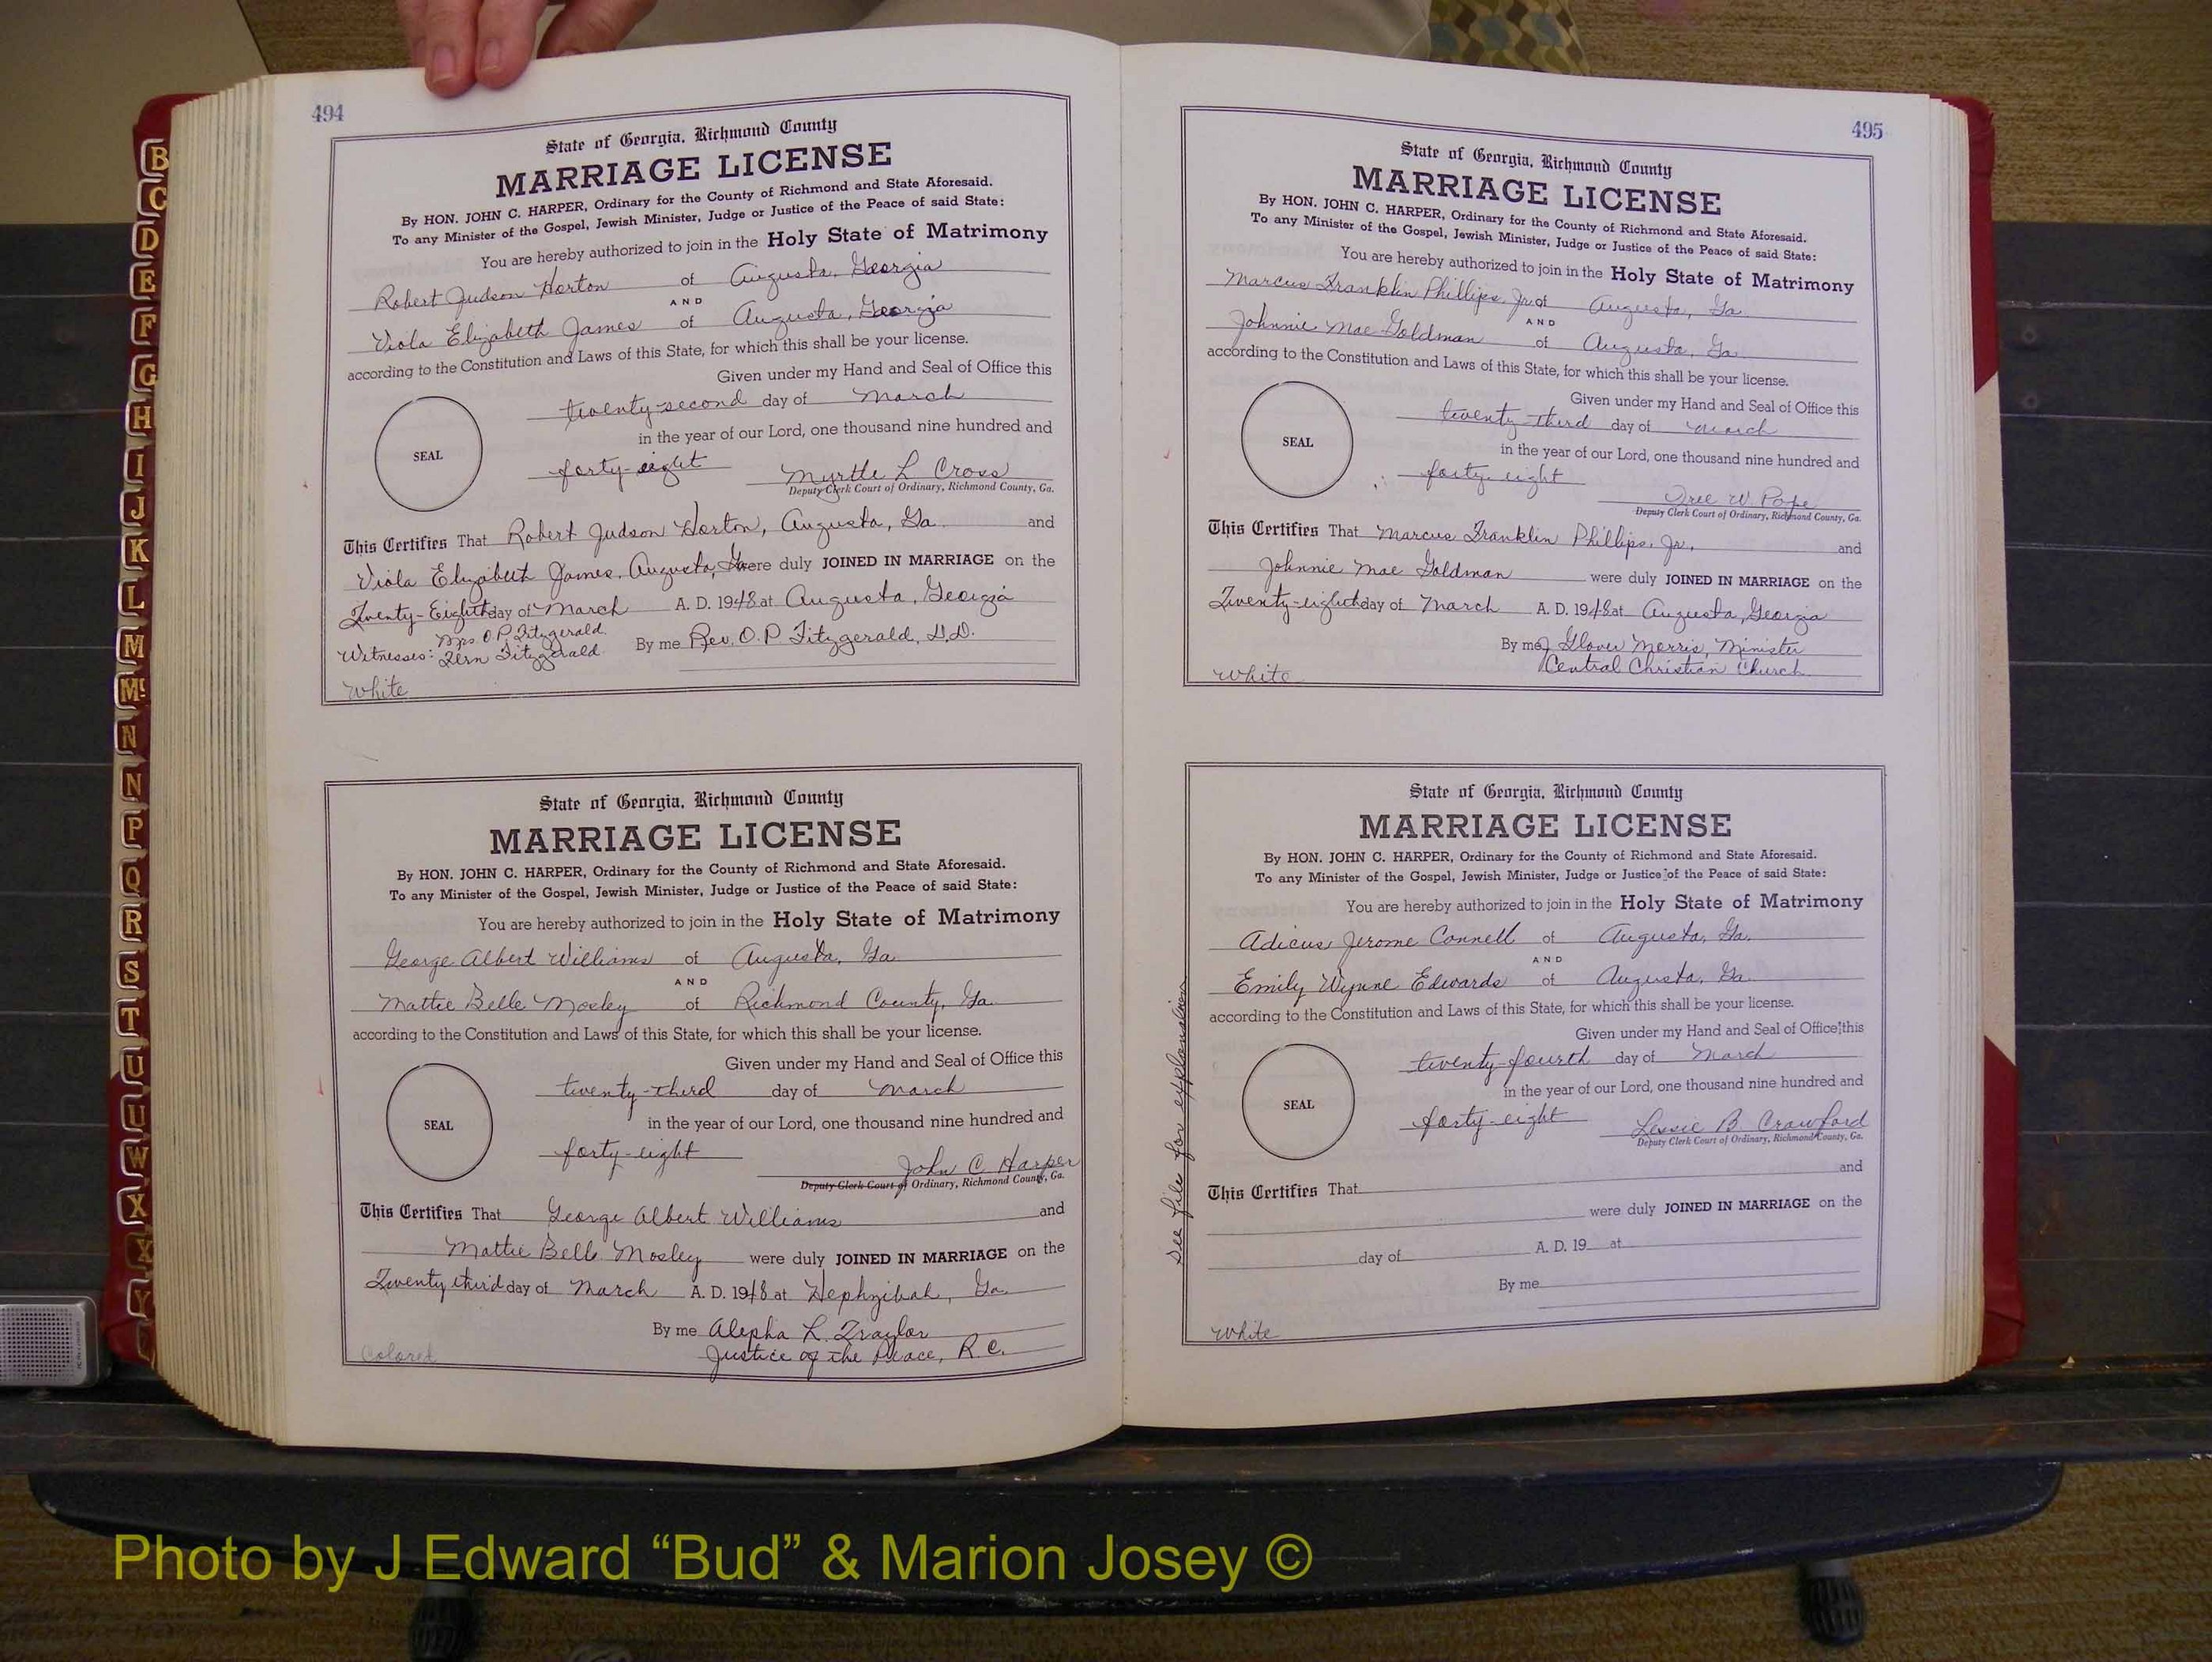 494
State of Georgia, Richmond County
MARRIAGE LICENSE
By HON. JOHN C. HARPER, Ordinary for the County of Richmond and State Aforesaid.
To any Minister of the Gospel, Jewish Minister, Judge or Justice of the Peace of said State:
You are hereby authorized to join in the Holy State of Matrimony
Robert Judson Horton of Augusta, Georgia
AND
Viola Elizabeth James of Augusta, Georgia
according to the Constitution and Laws of this State, for which this shall be your license.
Given under my Hand and Seal of Office this
twenty-second day of March
in the year of our Lord, one thousand nine hundred and
SEAL
forty-eight Myrtle L Cross
Deputy Clerk Court of Ordinary, Richmond County, Ga.
This Certifies That Robert Judson Horton, Augusta, Ga and
Viola Elizabeth James, Augusta, Ga were duly JOINED IN MARRIAGE on the
Twenty-Eighth day of March A. D. 1948 at Augusta, Georgia
Witnesses: Mrs. O.P. Fitzgerald By me Rev. O. P. Fitzgerald, D.D.
Fitzgerald
White
State of Georgia, Richmond County
MARRIAGE LICENSE
By HON. JOHN C. HARPER, Ordinary for the County of Richmond and State Aforesaid.
To any Minister of the Gospel, Jewish Minister, Judge or Justice of the Peace of said State:
You are hereby authorized to join in the Holy State of Matrimony
George Albert Williams of Augusta, Ga.
AND
Mattie Belle Mosley of Richmond County, Ga.
according to the Constitution and Laws of this State, for which this shall be your license.
Given under my Hand and Seal of Office this
twenty-third day of March
SEAL
in the year of our Lord, one thousand nine hundred and
forty-eight John C. Harper
Deputy Clerk Court of Ordinary, Richmond County, Ga.
This Certifies That George Albert Williams and
Mattie Belle Mosley were duly JOINED IN MARRIAGE on the
Twenty third day of March A. D. 1948 at Hephzibah, Ga.
By me Alepha L. Traylor
Justice of the Peace, R.C.
Colored
495
State of Georgia, Richmond County
MARRIAGE LICENSE
By HON. JOHN C. HARPER, Ordinary for the County of Richmond and State Aforesaid.
To any Minister of the Gospel, Jewish Minister, Judge or Justice of the Peace of said State:
You are hereby authorized to join in the Holy State of Matrimony
Marcus Franklin Phillips, Jr. of Augusta, Ga
AND
Johnnie Mae Goldman of Augusta, Ga
according to the Constitution and Laws of this State, for which this shall be your license.
Given under my Hand and Seal of Office this
twenty-third day of March
SEAL
in the year of our Lord, one thousand nine hundred and
forty-eight W. Pope
Deputy Clerk Court of Ordinary, Richmond County, Ga.
This Certifies That Marcus Franklin Phillips, Jr. and
Johnnie Mae Goldman were duly JOINED IN MARRIAGE on the
Twenty-eighth day of March A. D. 1948 at Augusta, Georgia
By me J Glover Morris, Minister
Central Christian Church
White
State of Georgia, Richmond County
MARRIAGE LICENSE
By HON. JOHN C. HARPER, Ordinary for the County of Richmond and State Aforesaid.
To any Minister of the Gospel, Jewish Minister, Judge or Justice of the Peace of said State:
You are hereby authorized to join in the Holy State of Matrimony
Adicus Jerome Connell of Augusta, Ga.
AND
Emily Wynne Edwards of Augusta, Ga.
according to the Constitution and Laws of this State, for which this shall be your license.
Given under my Hand and Seal of Office this
twenty-fourth day of March
in the year of our Lord, one thousand nine hundred and
SEAL
forty-eight Lessie B. Crawford
Deputy Clerk Court of Ordinary, Richmond County, Ga.
This Certifies That and
were duly JOINED IN MARRIAGE on the
day of A. D. 19 at
By me
White
See file for explanation
B
C
D
E
F
G
H
I
J
K
L
M
Mc
N
N
P
Q
R
S
T
U
U
W
X
X
Y
Photo by J Edward “Bud” & Marion Josey ©